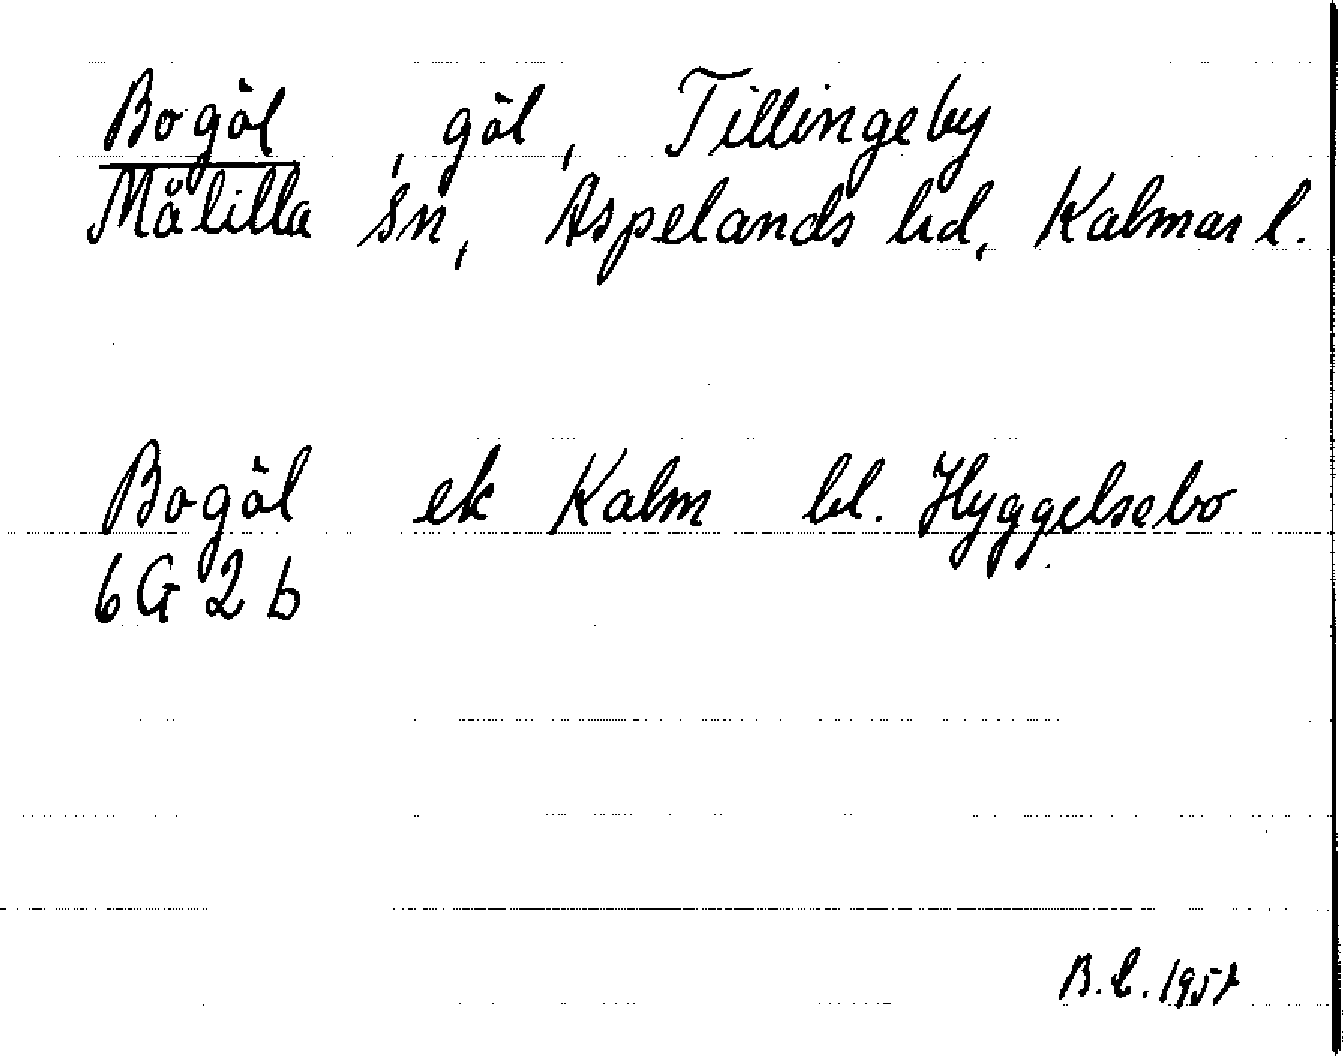 Bogöl , göl, Tillingeby
Målilla sn, Aspelands hd, Kalmar l.
Bogöl ek Kalm bl. Hyggelsebo
6 G 2 b
B.L. 1957